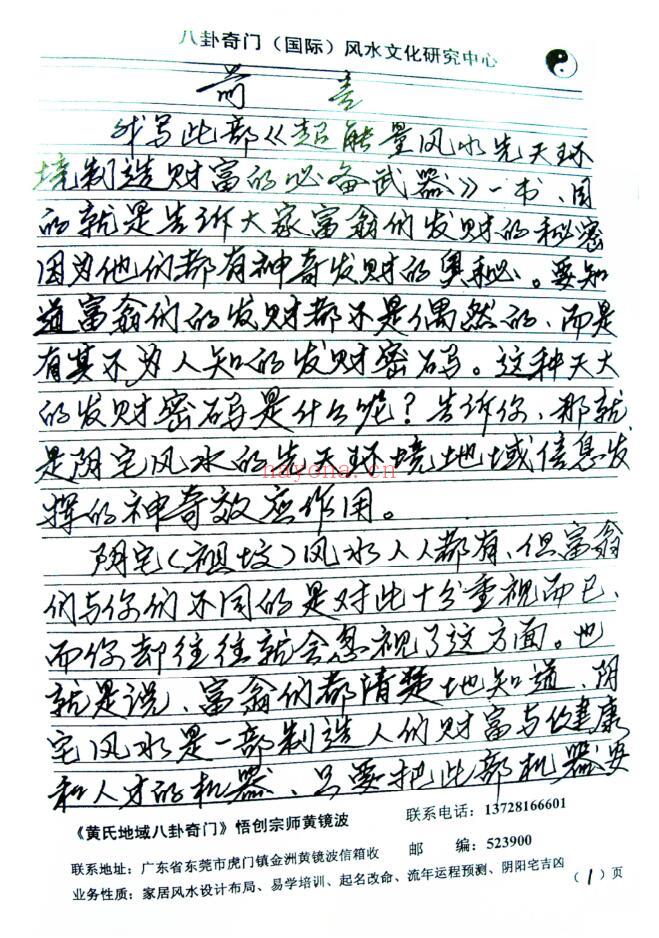 八卦奇门（国际）风水文化研究中心
前言
我写此部《超能量风水先天环
境制造财富的必备武器》一书、目
的就是告诉大家富翁们发财的秘密
因为他们都有神奇发财的奥秘。要知
道富翁们的发财都不是偶然的、而是
有其不为人知的发财密码。这种天大
的发财密码是什么呢？告诉你、那就
是阴宅风水的先天环境地域信息发
挥的神奇效应作用。
nayona.cn
阴宅（祖坟）风水人人都有、但富翁
们与你们不同的是对此十分重视而已、
而你却往往就会忽视了这方面。也
就是说、富翁们都清楚地知道、阴
宅风水是一部制造人们财富与健康
和人才的机器、只要把此部机器安
《黄氏地域八卦奇门》悟创宗师黄镜波
联系电话：13728166601
联系地址：广东省东莞市虎门镇金洲黄镜波信箱收
邮 编：523900
业务性质：家居风水设计布局、易学培训、起名改命、流年运程预测、阴阳宅吉凶
（1）页